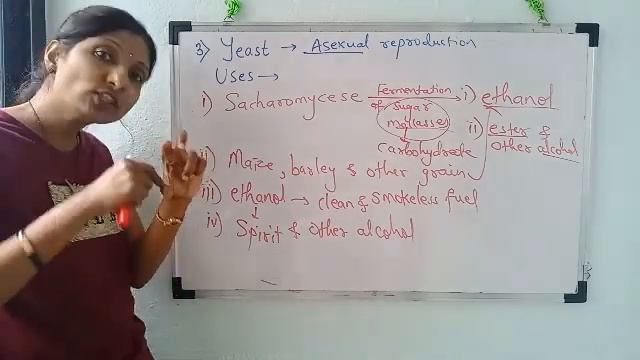 3) Yeast → Asexual reproduction
Uses →
i) Sacharomycese Fermentation → i) ethanol
of sugar
molasses
ii) ester &
other alcohol
Carbohydrade
ii) Maize, barley & other grain
iii) ethanol → clean & smokeless fuel
↓
iv) Spirit & other alcohol